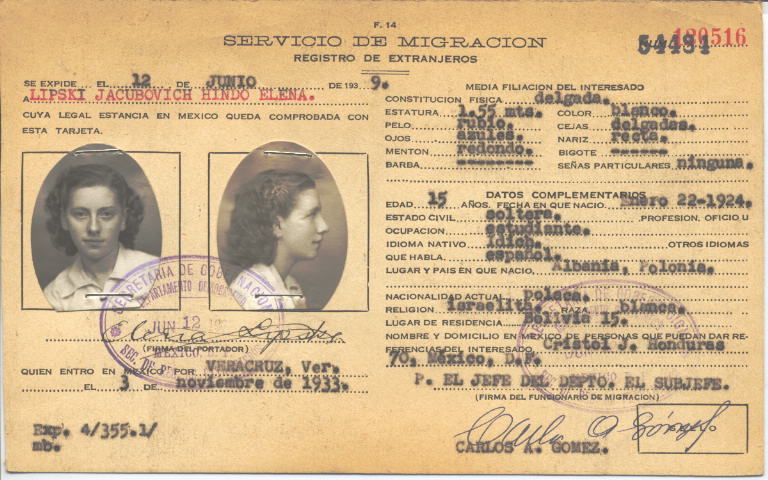 F. 14
SERVICIO DE MIGRACION
REGISTRO DE EXTRANJEROS
54431
120516
SE EXPIDE EL 12 DE JUNIO DE 193 9.
A LIPSKI JACUBOVICH HINDO ELENA.
CUYA LEGAL ESTANCIA EN MEXICO QUEDA COMPROBADA CON
ESTA TARJETA.
SECRETARIA DE GOBERNACION
JUN 12
MEXICO
(FIRMA DEL PORTADOR)
QUIEN ENTRO EN MEXICO POR VERACRUZ, Ver.
EL 3 DE noviembre de 1933.
Exp. 4/355.1/
mb.
MEDIA FILIACION DEL INTERESADO
CONSTITUCION FISICA delgada.
ESTATURA 1.55 mts. COLOR blanco.
PELO rubio. CEJAS delgadas.
OJOS azules. NARIZ recta.
MENTON redondo. BIGOTE ------
BARBA -------- SEÑAS PARTICULARES ninguna.
DATOS COMPLEMENTARIOS
EDAD 15 AÑOS. FECHA EN QUE NACIO Enero 22-1924.
ESTADO CIVIL soltera. PROFESION, OFICIO U
OCUPACION estudiante.
IDIOMA NATIVO idich. OTROS IDIOMAS
QUE HABLA. español.
LUGAR Y PAIS EN QUE NACIO Albania, Polonia.
NACIONALIDAD ACTUAL polaca.
RELIGION israelita RAZA blanca.
LUGAR DE RESIDENCIA Bolivia 15.
NOMBRE Y DOMICILIO EN MEXICO DE PERSONAS QUE PUEDAN DAR RE-
FERENCIAS DEL INTERESADO Cristol J. Honduras
70, México, D.F.
P. EL JEFE DEL DEPTO. EL SUBJEFE.
(FIRMA DEL FUNCIONARIO DE MIGRACION)
CARLOS A. GOMEZ.